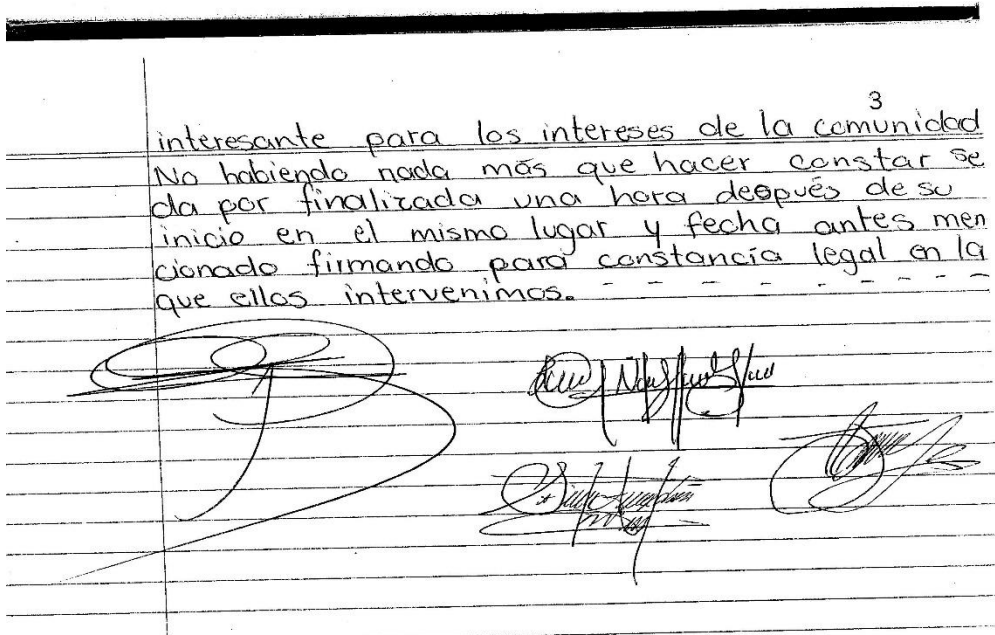 3
interesante para los intereses de la comunidad
No habiendo nada más que hacer constar se
da por finalizada una hora después de su
inicio en el mismo lugar y fecha antes men
cionado firmando para constancia legal en la
que ellos intervenimos. - - - - - - - - -